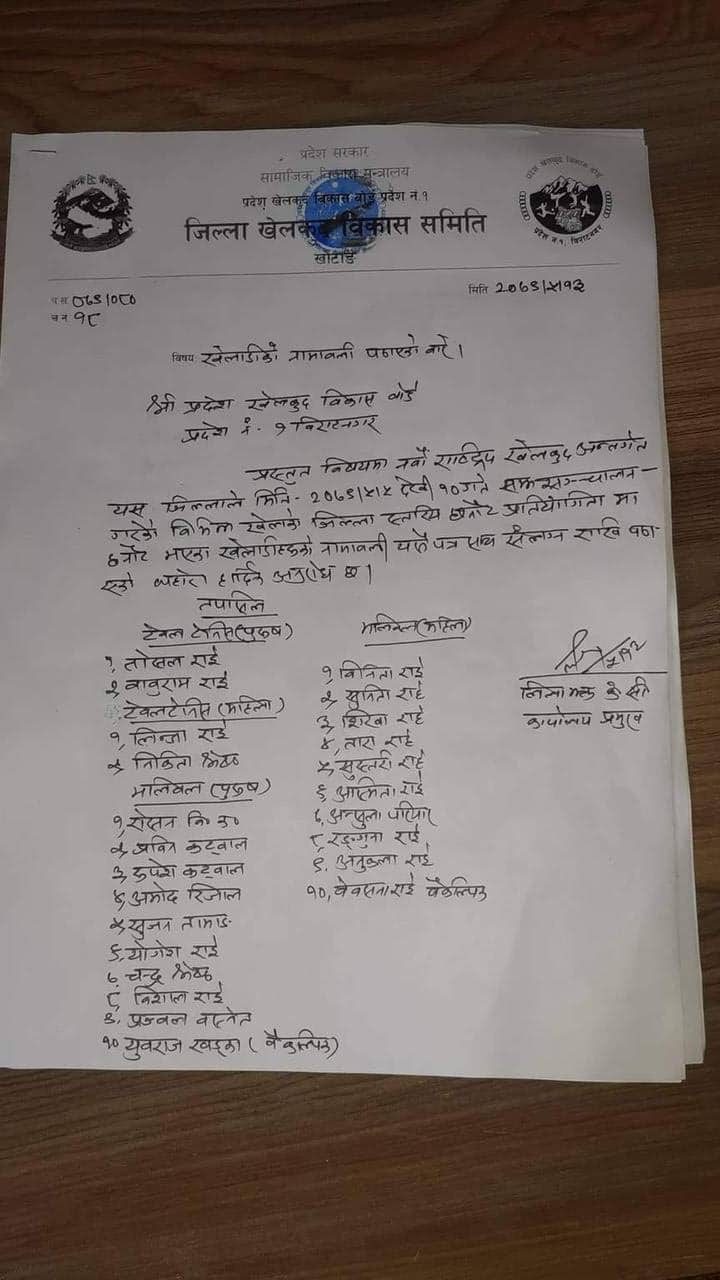 प्रदेश सरकार
सामाजिक विकास मन्त्रालय
प्रदेश खेलकुद विकास बोर्ड प्रदेश नं.१
जिल्ला खेलकुद विकास समिति
खोटाङ
प्रदेश खेलकुद विकास बोर्ड
प्रदेश नं.१, बिराटनगर
प.स ०७९/०८०
च.न १८
मिति २०७९/५/१३
विषय: खेलाडीको नामावली पठाएको बारे।
श्री प्रदेश खेलकुद विकास बोर्ड
प्रदेश नं. १ बिराटनगर
प्रस्तुत विषयमा नवौं राष्ट्रिय खेलकुद अन्तर्गत
यस जिल्लाले मिति- २०७९/५/५ देखी १० गते सम्म सञ्चालन
गरेको विभिन्न खेलको जिल्ला स्तरिय छनौट प्रतियोगिता मा
छनौट भएका खेलाडीहरुको नामावली यसै पत्र साथ संलग्न राखि पठा
एको व्यहोरा हार्दिक अनुरोध छ।
तपासिल
टेबल टेनिस (पुरुष)
१, तोसल राई
२, बाबुराम राई
टेबलटेनिस (महिला)
१, लिन्जा राई
२, निकिता श्रेष्ठ
भलिबल (पुरुष)
१, रोशन वि.क
२, प्रविन कटवाल
३, रुपेश कटवाल
४, अमोद रिजाल
५, सुजन तामाङ
६, योगेश राई
७, चन्द्र श्रेष्ठ
८, विशाल राई
९, प्रज्वल बस्नेत
१० युवराज खड्का (वैकल्पिक)
भलिबल (महिला)
१, विनिता राई
२, सुनिता राई
३, शिखा राई
४, तारा राई
५, सुस्तरी राई
६, अस्मिता राई
७, परियार
८, राई
९, अनुकला राई
१०, राई वैकल्पिक
कार्यालय प्रमुख